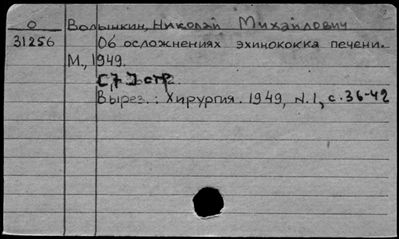 О Волынкин, Николай Михайлович
31256 Об осложнениях эхинококка печени.
М., 1949.
[7] стр.
Вырез.: Хирургия. 1949, N.1, с.36-42